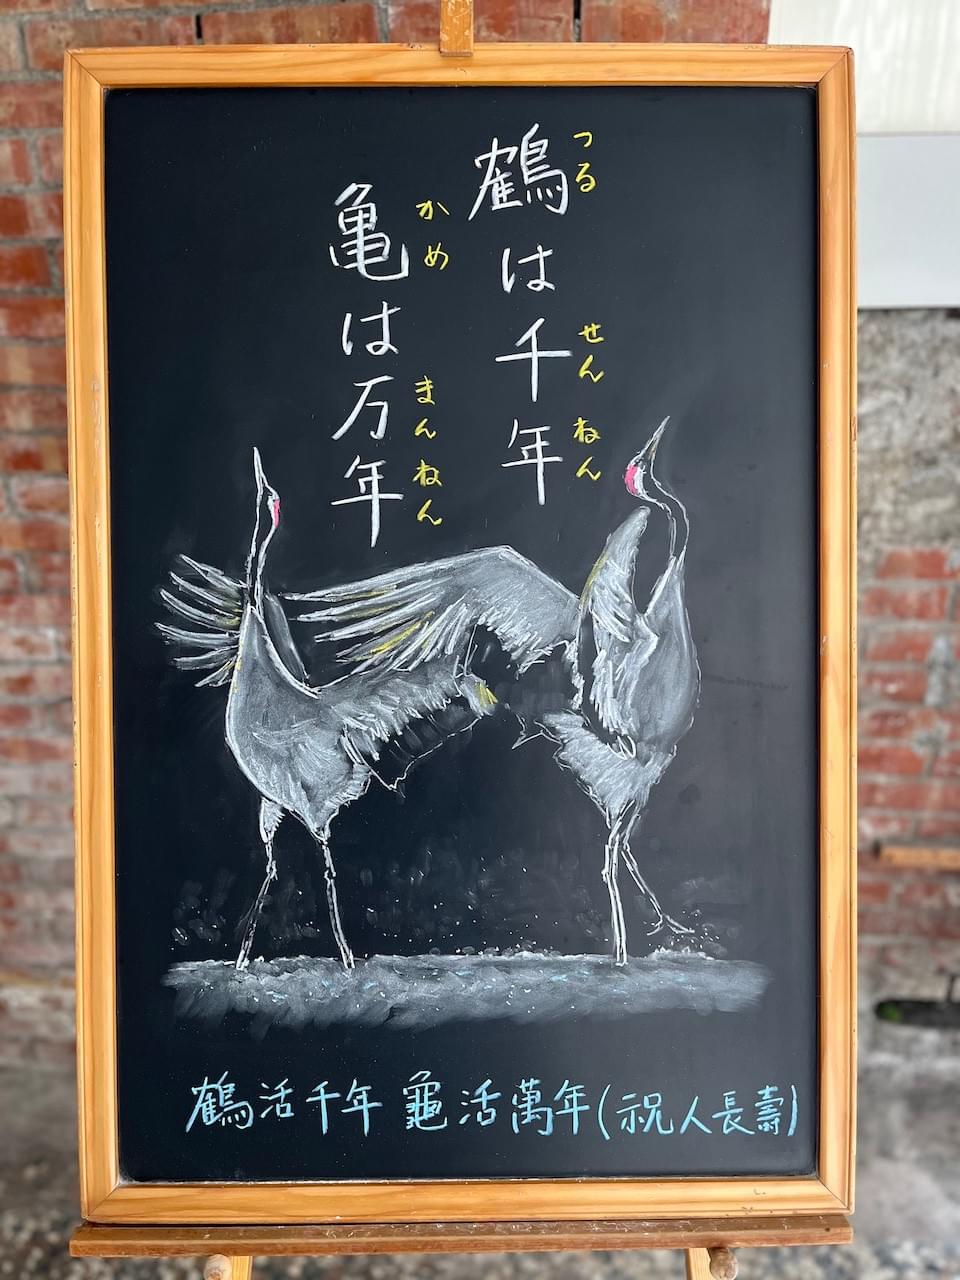 鶴は千年
つる せんねん
亀は万年
かめ まんねん
鶴活千年 龜活萬年(祝人長壽)